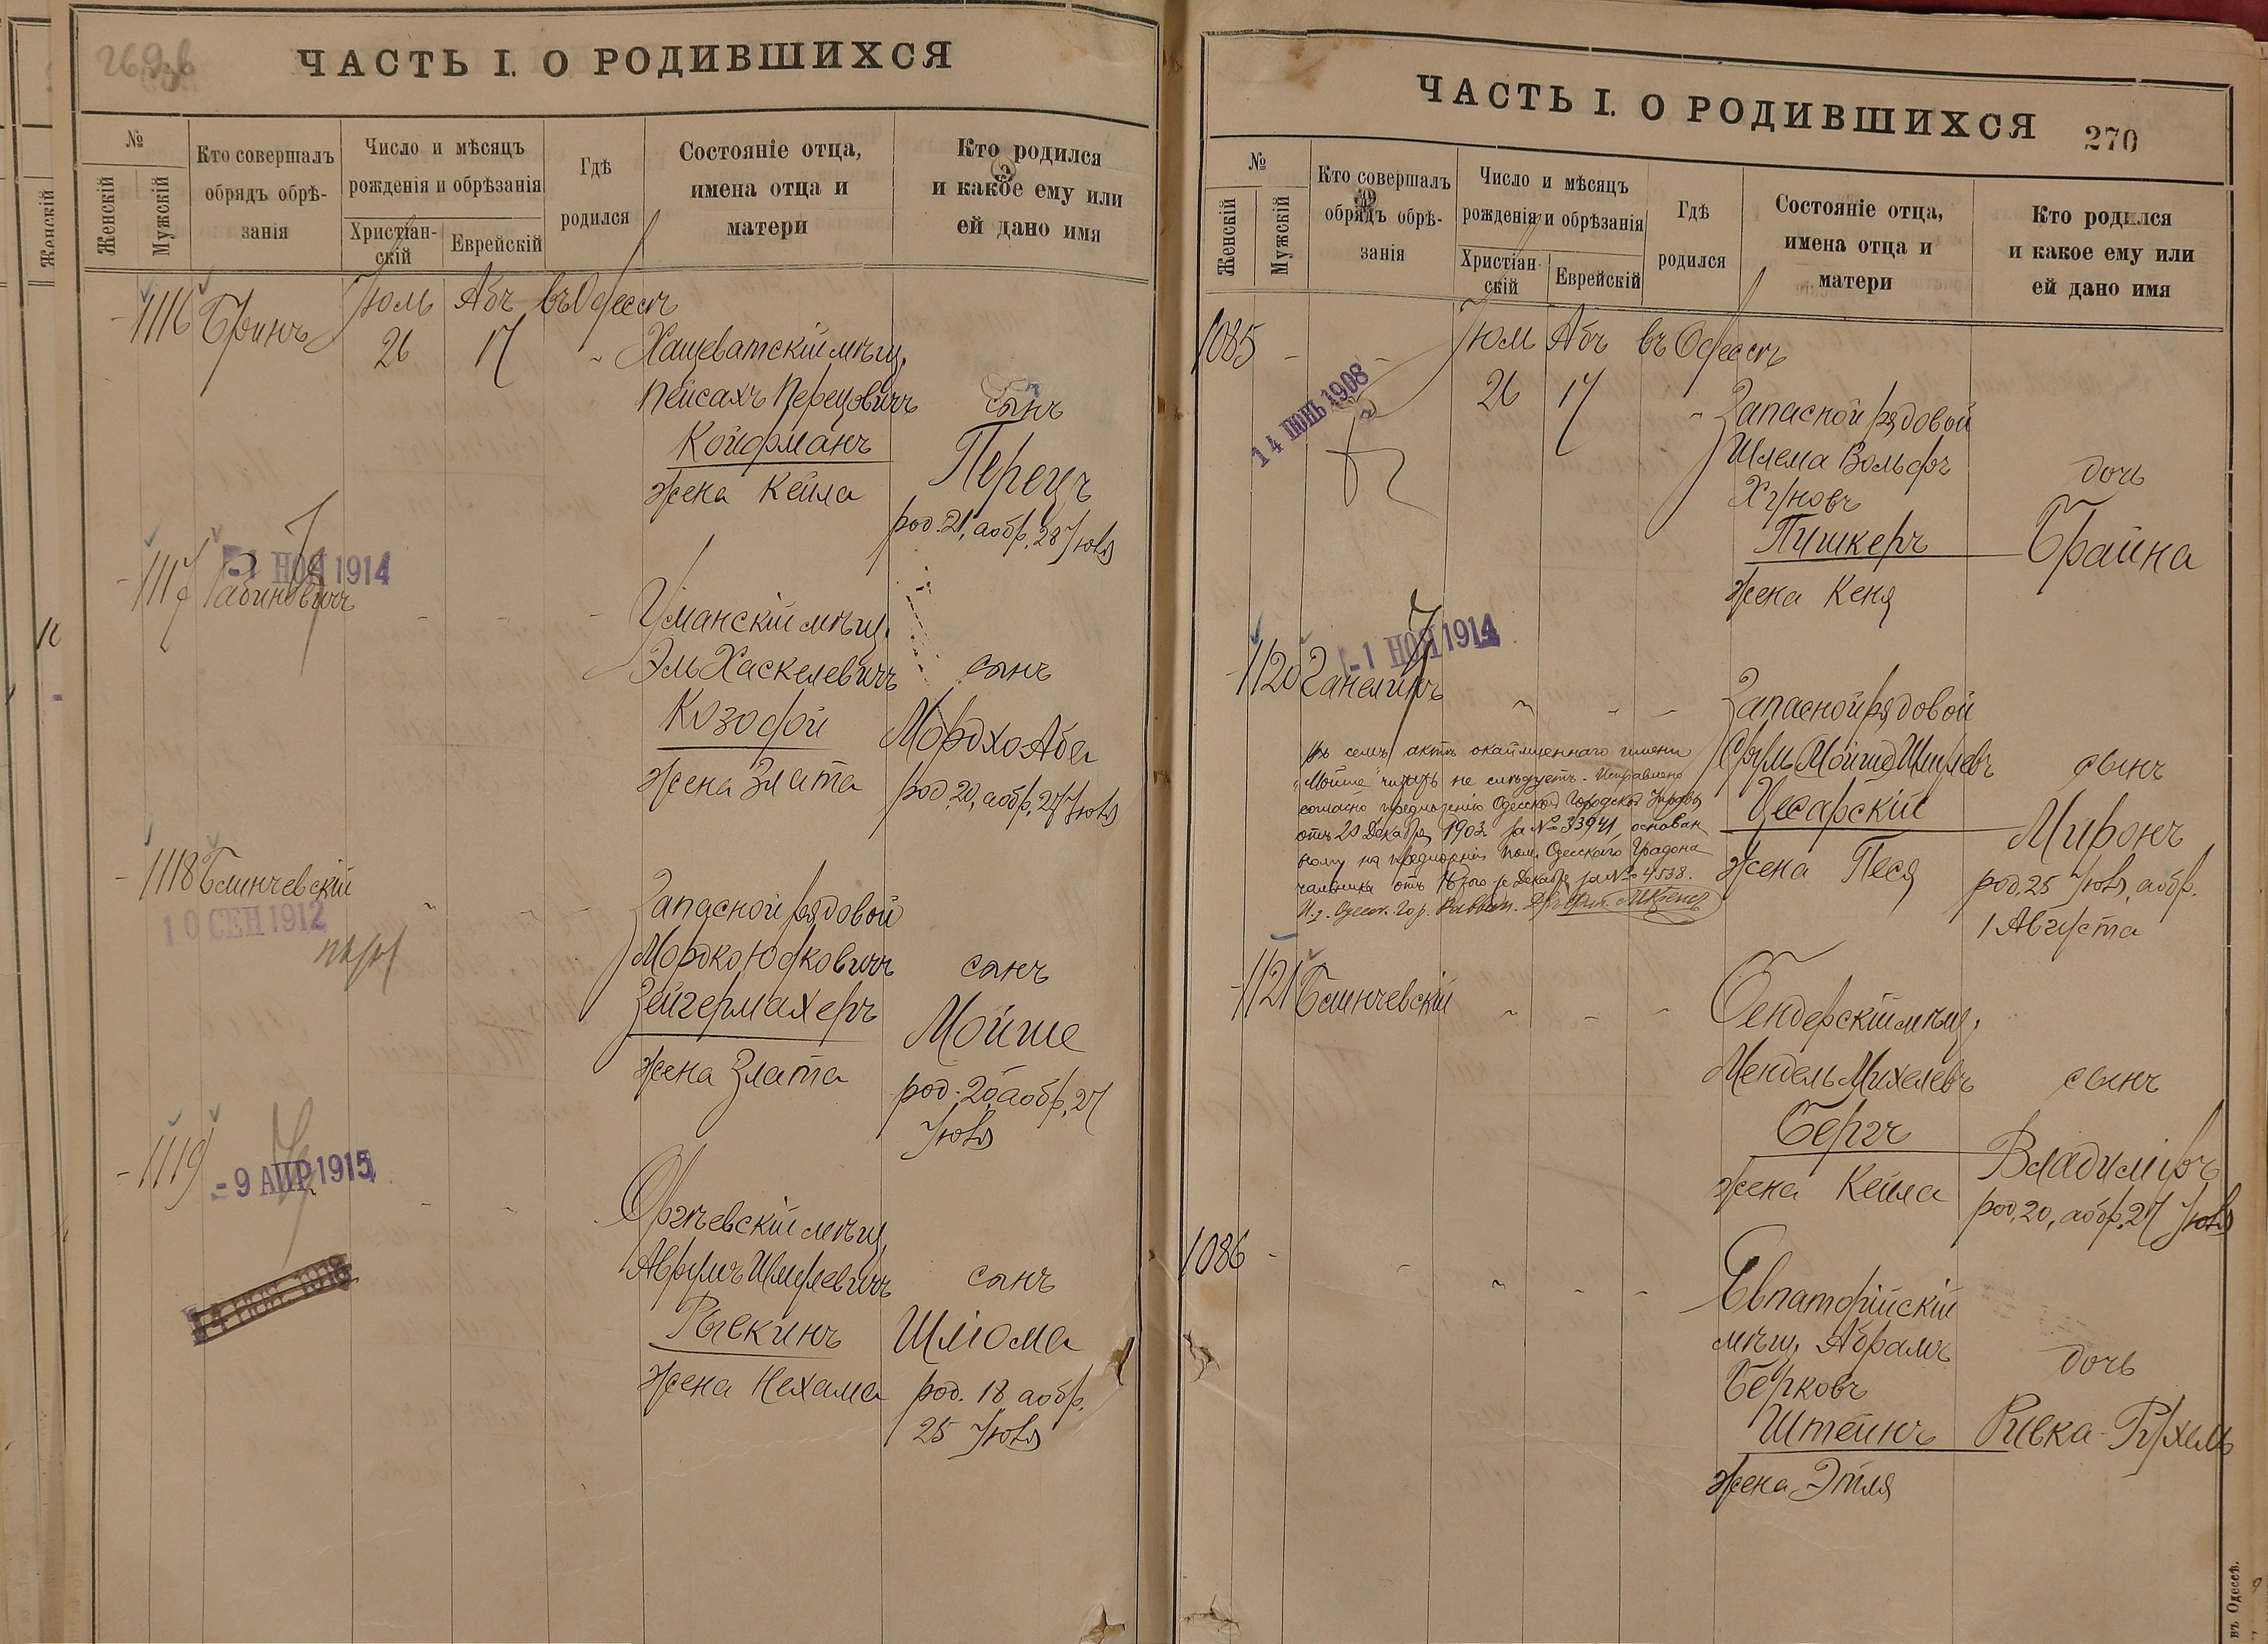 ЧАСТЬ I. О РОДИВШИХСЯ
№
Женскій
Мужскій
Кто совершалъ
обрядъ обрѣ-
занія
Число и мѣсяцъ
рожденія и обрѣзанія
Христіан-
скій
Еврейскій
Гдѣ
родился
Состояніе отца,
имена отца и
матери
Кто родился
и какое ему или
ей дано имя
1116 Бринъ Іюль 26 Абъ 17 въ Одессѣ
Хащеватскій мѣщ.
Пейсахъ Перецовичъ
Койфманъ
жена Кейла
сынъ
Перецъ
род. 21, а обр. 28 Іюля
1117 Рабиновичъ
-1 НОЯ 1914
Уманскій мѣщ.
Эль Хаскелевичъ
Козодой
жена Злата
сынъ
Мордхо Аба
род. 20, а обр. 27 Іюля
1118 Блинчевскій
10 СЕН 1912
Запасной рядовой
Мордко Юдковичъ
Зейгермахеръ
жена Злата
сынъ
Мойше
род. 20 а обр. 27
Іюля
1119
-9 АПР 1915
Оргѣевскій мѣщ.
Аврумъ Шмулевичъ
Рывкинъ
жена Нехама
сынъ
Шліома
род. 18 а обр.
25 Іюля
ЧАСТЬ I. О РОДИВШИХСЯ
270
№
Женскій
Мужскій
Кто совершалъ
обрядъ обрѣ-
занія
Число и мѣсяцъ
рожденія и обрѣзанія
Христіан-
скій
Еврейскій
Гдѣ
родился
Состояніе отца,
имена отца и
матери
Кто родился
и какое ему или
ей дано имя
1085 Іюль 26 Абъ 17 въ Одессѣ
14 ІЮНЬ 1908
Запасной рядовой
Шлема Вольфъ
Хуновъ
Пушкеръ
жена Кеня
дочь
Брайна
1120 Ганелинъ
-1 НОЯ 1914
Запасной рядовой
Сруль Мойше Шмулевъ
Цесарскій
жена Песя
сынъ
Миронъ
род. 25 Іюля, а обр.
1 Августа
Въ семъ актѣ окаймленнаго имени
"Мойше" читать не слѣдуетъ. Исправлено
согласно предложенію Одесской Городской Управы
отъ 20 Декабря 1903 за № 33941, основан
ному на Одесскаго Градона
чальника отъ Декабря за № 4538.
И. д. Одесск. Гор. Раввин.
1121 Блинчевскій
Бендерскій мѣщ.
Мендель Михелевъ
Бергъ
жена Кейла
сынъ
Владиміръ
род. 20, а обр. 27 Іюля
1086
Евпаторійскій
мѣщ. Абрамъ
Берковъ
Штейнъ
жена Этля
дочь
Ривка-Рухель
въ Одессѣ.